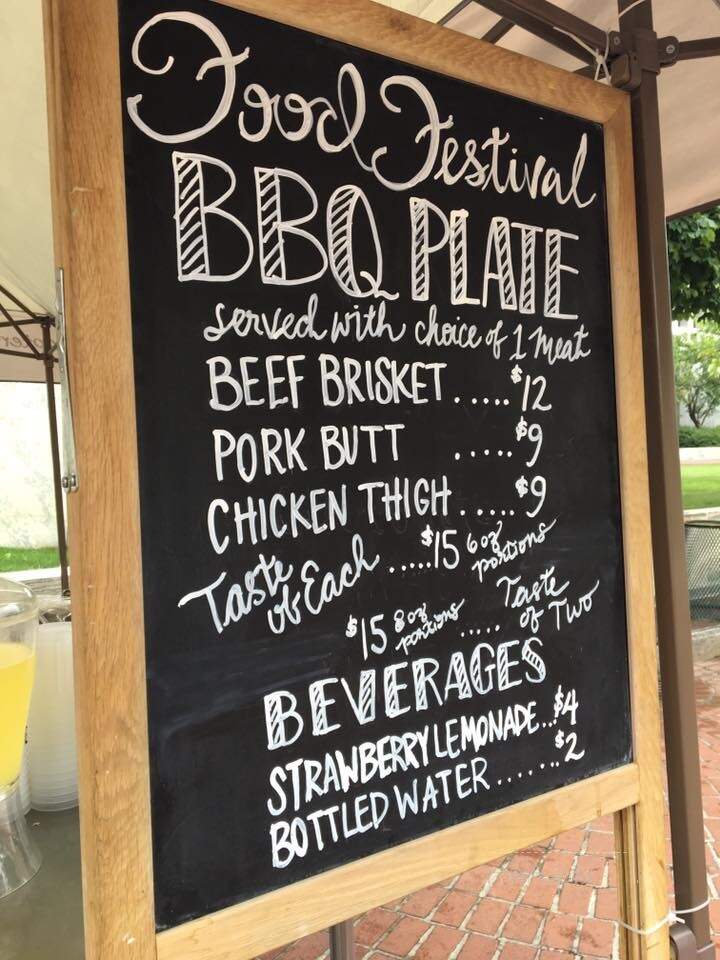 Food Festival
BBQ PLATE
served with choice of 1 meat
BEEF BRISKET ..... $12
PORK BUTT ..... $9
CHICKEN THIGH ..... $9
Taste of Each ..... $15 6oz portions
$15 8oz portions ..... Taste of Two
BEVERAGES
STRAWBERRY LEMONADE... $4
BOTTLED WATER ....... $2